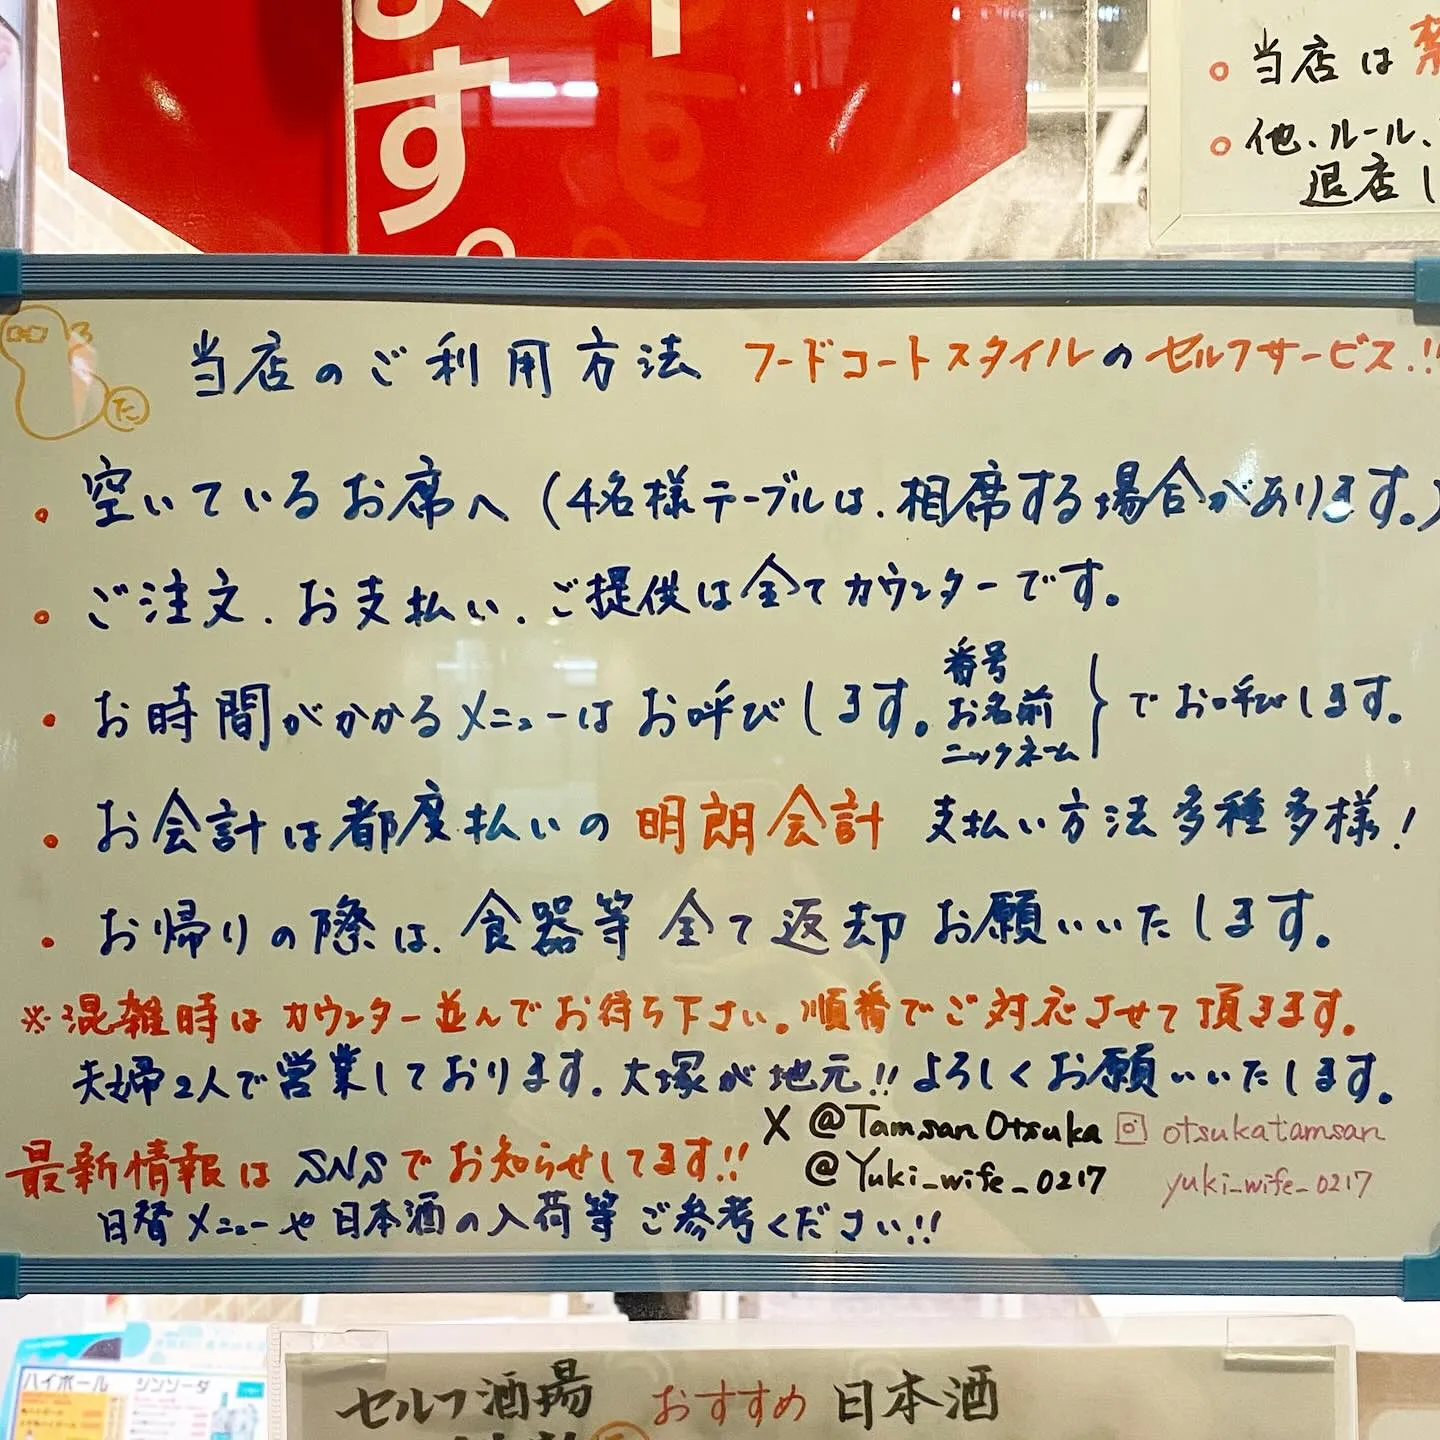 ます。
当店は禁
他、ルール、
退店し
た
当店のご利用方法 フードコートスタイルのセルフサービス!!
・空いているお席へ(4名様テーブルは、相席する場合があります。)
・ご注文、お支払い、ご提供は全てカウンターです。
・お時間がかかるメニューはお呼びします。番号 お名前 ニックネーム }でお呼びします。
・お会計は都度払いの明朗会計 支払い方法多種多様!
・お帰りの際は、食器等全て返却お願いいたします。
※混雑時はカウンター並んでお待ち下さい。順番でご対応させて頂きます。
夫婦2人で営業しております。大塚が地元!!よろしくお願いいたします。
X @TamsanOtsuka otsukatamsan
最新情報はSNSでお知らせしてます!! @Yuki_wife_0217 yuki_wife_0217
日替メニューや日本酒の入荷等ご参考ください!!
ハイボール サンソーダ
セルフ酒場 おすすめ 日本酒